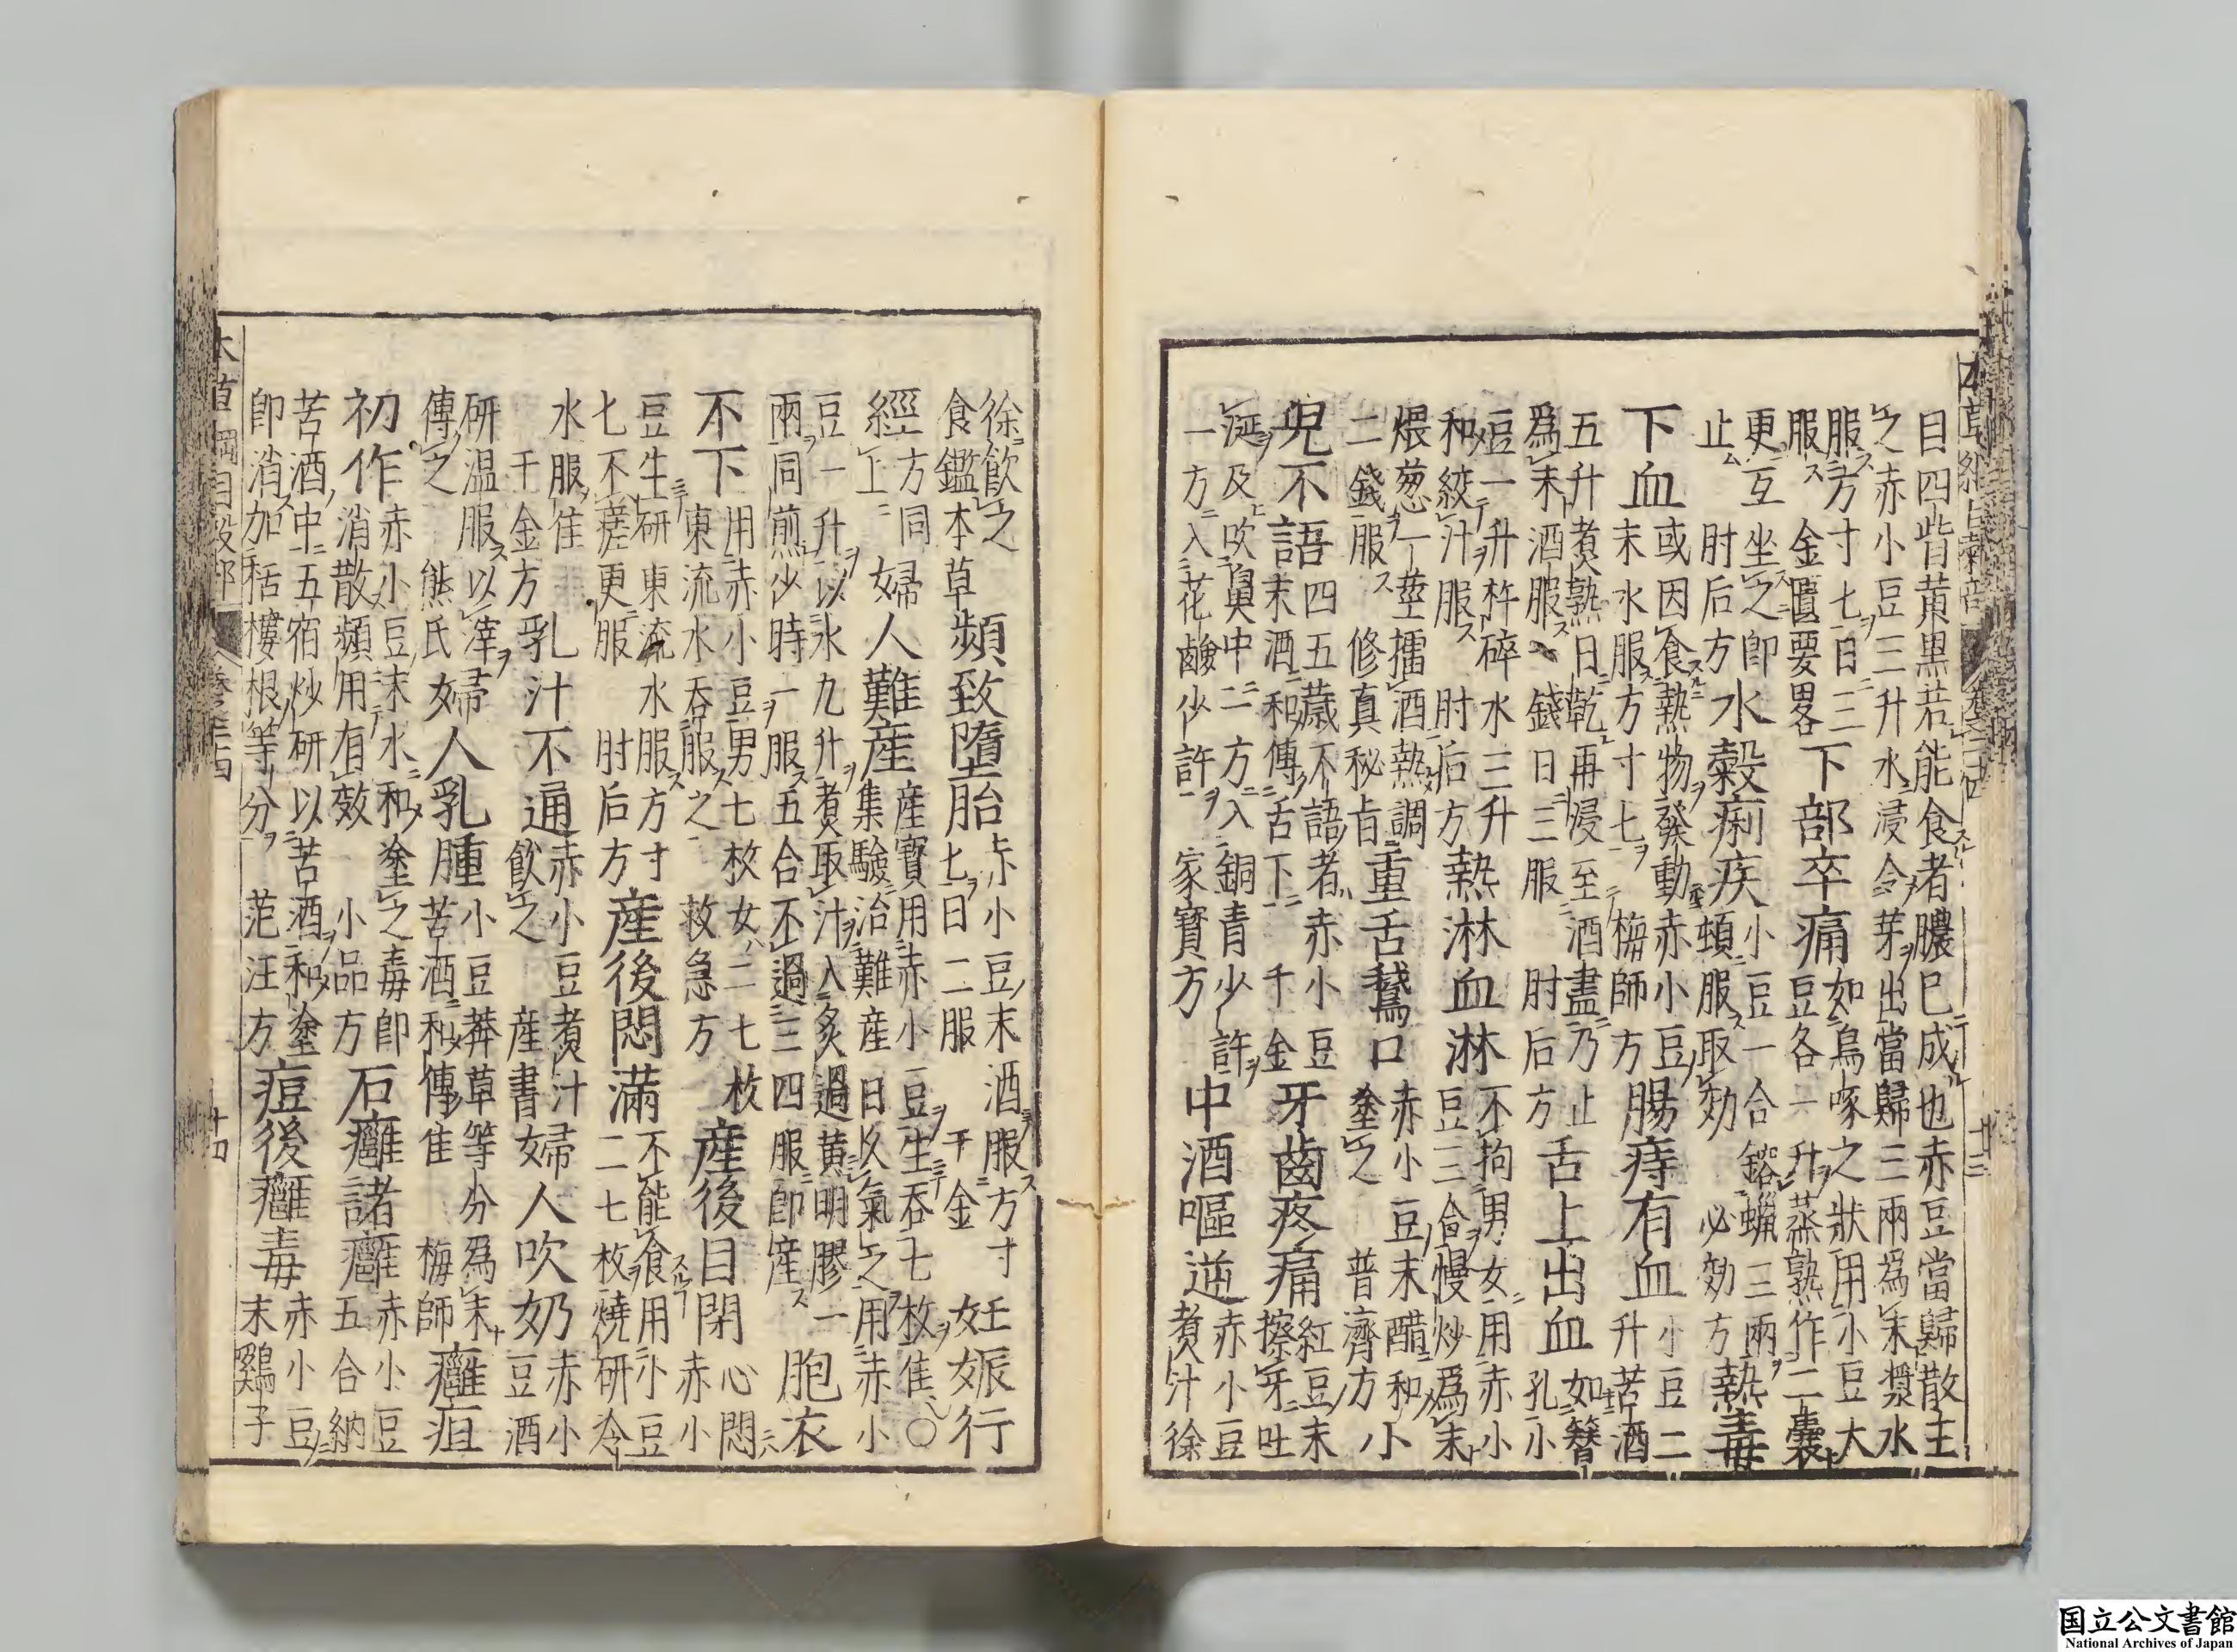 目四眥黃黑若能食者膿已成也赤豆當歸散主之赤小豆三升水浸令芽出當歸三兩爲末漿水
服方寸匕日三服 金匱要畧 下部卒痛 如鳥啄之狀用小豆大豆各一升蒸熟作二囊
更互坐之即止 肘后方 水穀痢疾 小豆一合鎔蠟三兩頓服取効 必効方 熱毒
下血 或因食熱物發動赤小豆末水服方寸匕 梅師方 腸痔有血 小豆二升苦酒
五升煮熟日乾再浸至酒盡乃止爲末酒服一錢日三服 肘后方 舌上出血 如簪孔小
豆一升杵碎水三升和絞汁服 肘后方 熱淋血淋 不拘男女用赤小豆三合慢炒爲末
煨葱一莖擂酒熱調二錢服 修真秘旨 重舌鵞口 赤小豆末醋和塗之 普濟方 小
兒不語 四五歳不語者赤小豆末酒和傅舌下 千金 牙齒疼痛 紅豆末擦牙吐
涎及吹鼻中二方入銅青少許一方入花鹼少許 家寶方 中酒嘔逆 赤小豆煮汁徐
徐飲之 食鑑本草 頻致墮胎 赤小豆末酒服方寸匕日二服 千金 妊娠行
經 方同上 婦人難産 産寶用赤小豆生吞七枚佳〇集驗治難産日久氣乏用赤小
豆一升以水九升煮取汁入炙過黄明膠一兩同煎少時一服五合不過三四服即産 胞衣
不下 用赤小豆男七枚女二七枚東流水吞服之 救急方 産後目閉 心悶赤小
豆生研東流水服方寸匕不瘥更服 肘后方 産後悶滿 不能食用小豆二七枚燒研冷
水服佳 千金方 乳汁不通 赤小豆煮汁飲之 産書 婦人吹奶 赤小豆酒
研温服以滓傅之 熊氏 婦人乳腫 小豆莽草等分爲末苦酒和傅佳 梅師 癰疽
初作 赤小豆末水和塗之毒即消散頻用有效 小品方 石癰諸癰 赤小豆五合納
苦酒中五宿炒研以苦酒和塗即消加栝樓根等分 范汪方 痘後癰毒 赤小豆末鷄子
本草綱目穀部 卷二十四 十四
国立公文書館
National Archives of Japan